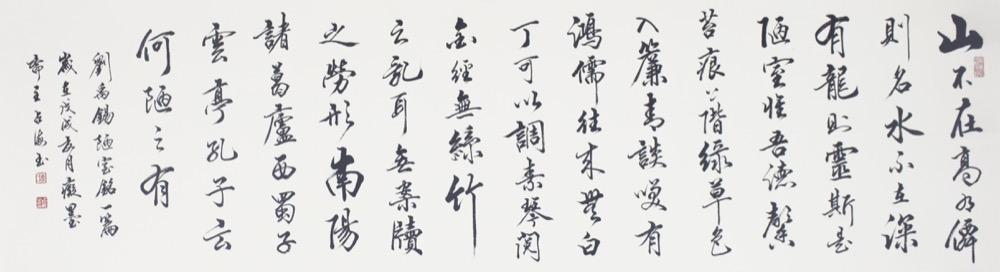 山不在高有僊
則名水不在深
有龍則靈斯是
陋室惟吾德馨
苔痕上階緑草色
入簾青談笑有
鴻儒往来無白
丁可以調素琴閲
金經無絲竹
之乱耳無案牘
之勞形南陽
諸葛廬西蜀子
雲亭孔子云
何陋之有
劉禹錫陋室銘一篇
歲在戊戌月墨
齋王占海书